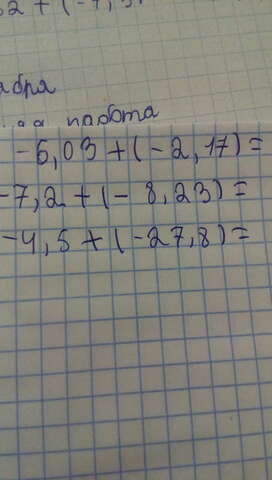 ,2 + (-7,3
абря
работа
-6,03+(-2,17)=
-7,2+(-8,23)=
-4,5+(-27,8)=